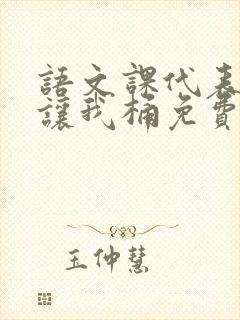 語文課代表
讓我桶免費
王仲慧